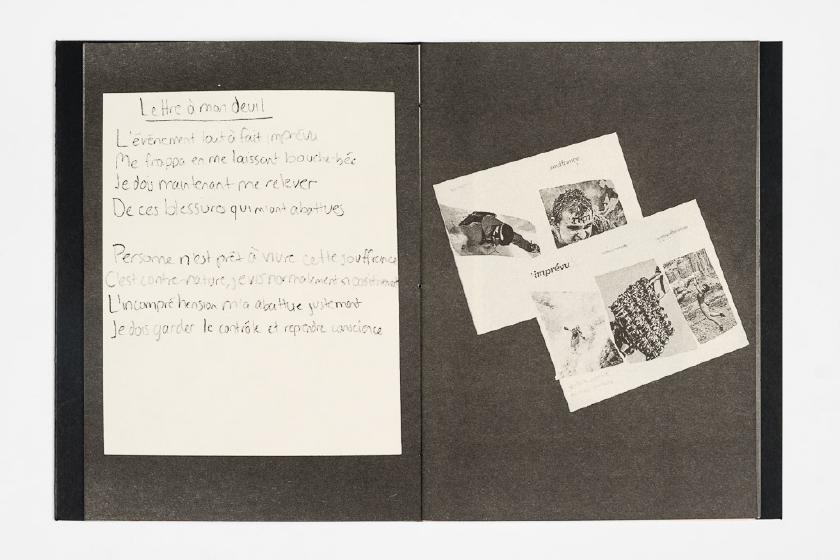 Lettre à mon deuil
L'évènement tout à fait imprévu
Me frappa en me laissant bouche-bée
Je dois maintenant me relever
De ces blessures qui m'ont abattues
Personne n'est prêt à vivre cette souffrance
C'est contre-nature, je vis normalement positivement
L'incompréhension m'a abattue justement
Je dois garder le contrôle et reprendre conscience
souffrance
imprévu